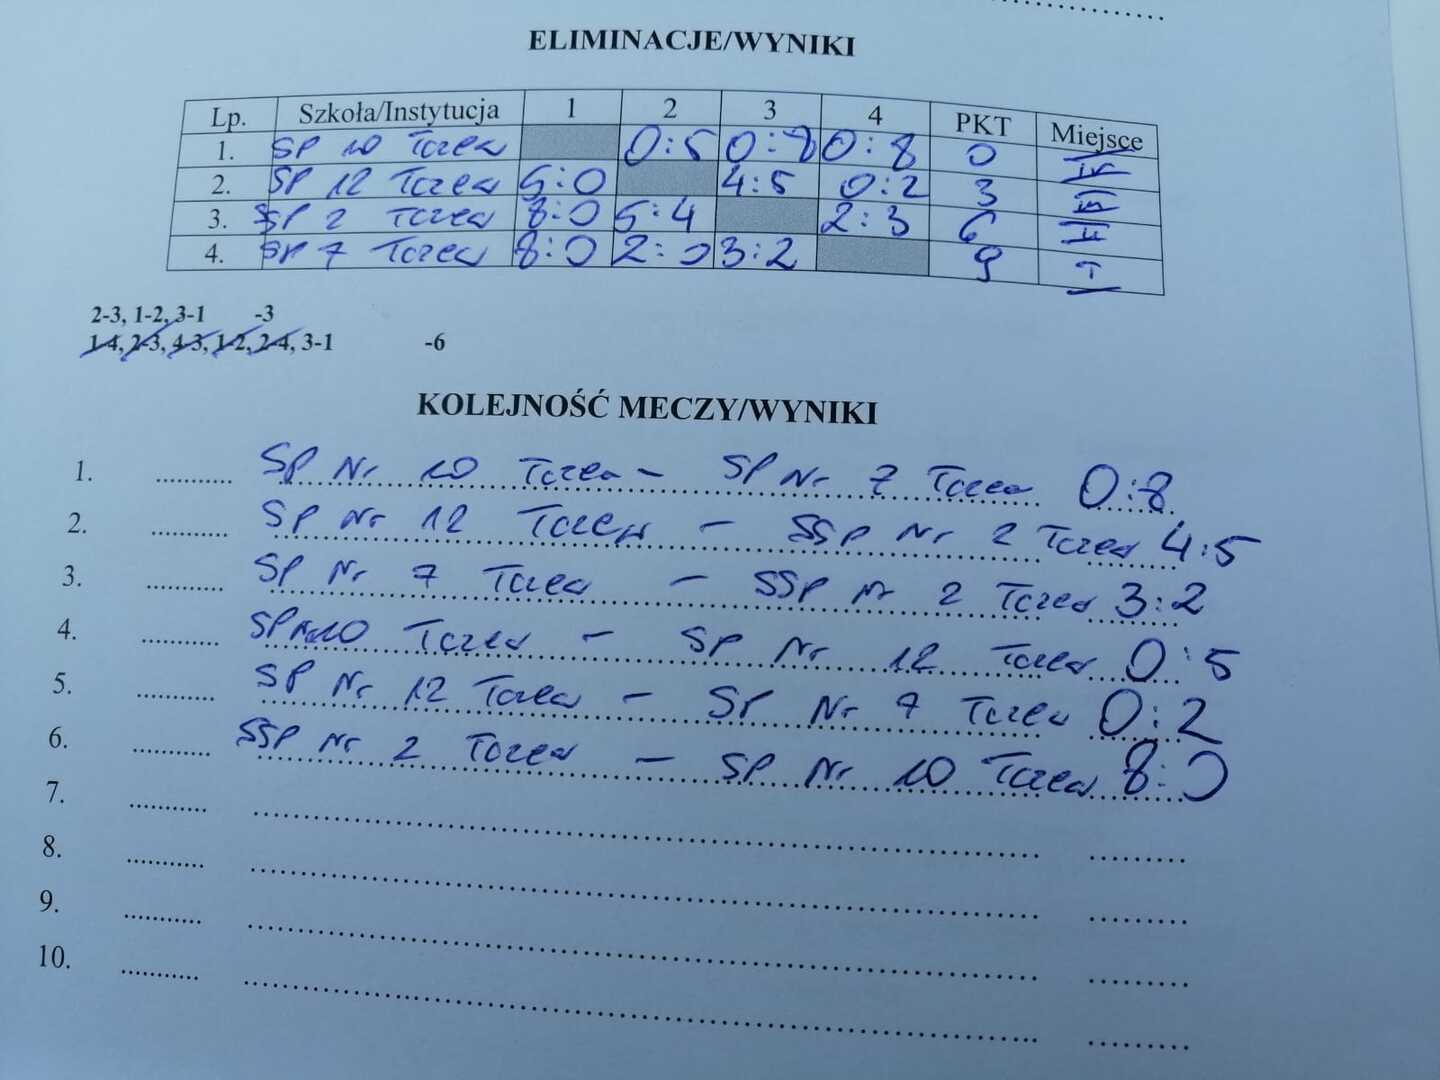 ELIMINACJE/WYNIKI
Lp. Szkoła/Instytucja 1 2 3 4 PKT Miejsce
1. SP 10 Tczew 0:5 0:8 0:8 0 IV
2. SP 12 Tczew 5:0 4:5 0:2 3 III
3. SSP 2 Tczew 8:0 5:4 2:3 6 II
4. SP 7 Tczew 8:0 2:0 3:2 9 I
2-3, 1-2, 3-1 -3
1-4, 2-3, 4-3, 1-2, 2-4, 3-1 -6
KOLEJNOŚĆ MECZY/WYNIKI
1. .......... SP Nr 10 Tczew - SP Nr 7 Tczew 0:8
2. .......... SP Nr 12 Tczew - SSP Nr 2 Tczew 4:5
3. .......... SP Nr 7 Tczew - SSP Nr 2 Tczew 3:2
4. .......... SP Nr 10 Tczew - SP Nr 12 Tczew 0:5
5. .......... SP Nr 12 Tczew - SP Nr 7 Tczew 0:2
6. .......... SSP Nr 2 Tczew - SP Nr 10 Tczew 8:0
7.
8.
9.
10.